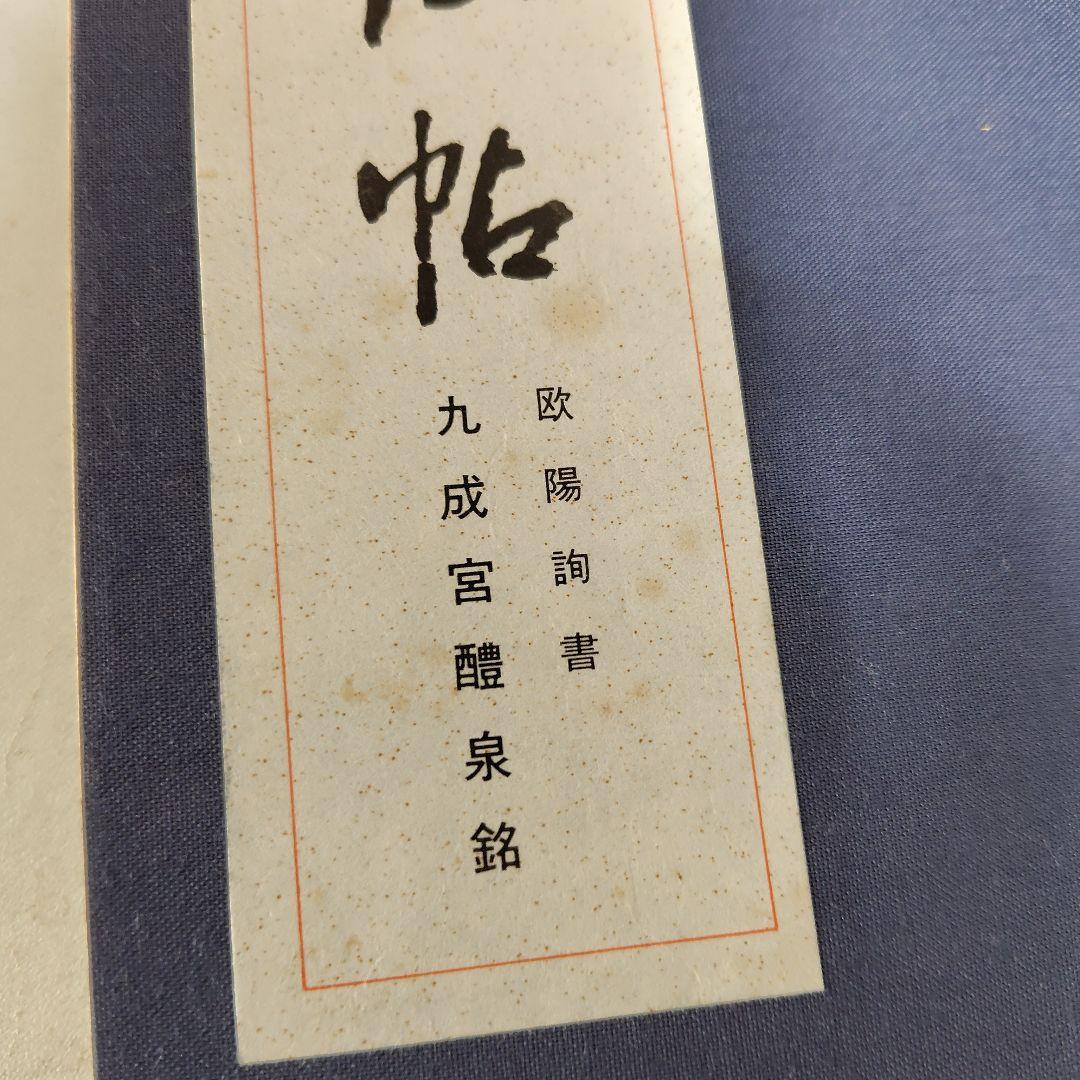 帖
欧陽詢書
九成宮醴泉銘